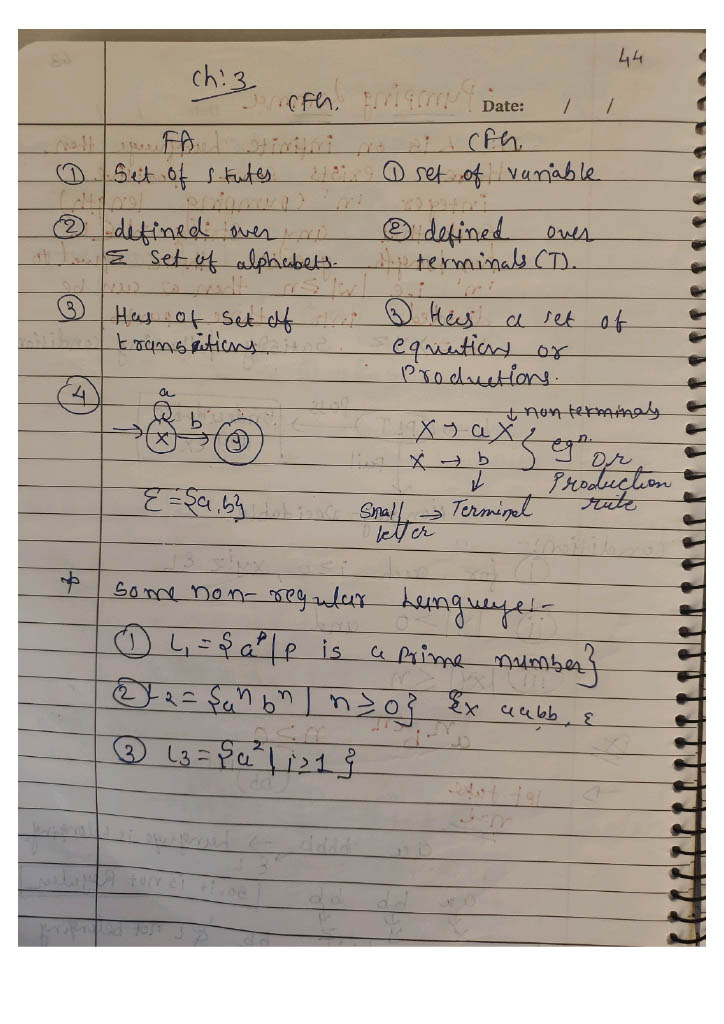 44
Ch: 3
CFG.
Date: / /
FA CFG.
① Set of states ① set of variable
② defined over ② defined over
Σ set of alphabets. terminals (T).
③ Has of set of ③ Has a set of
transitions. equations or
Productions.
④ a ↓ non terminals
→ X b → y X → aX } eqn.
X → b or
↓ Production
Σ = {a, b} Small → Terminal rule
letter
* Some non-regular Language:-
① L1 = {a^p | p is a prime number}
② L2 = {a^n b^n | n ≥ 0} Ex aabb, ε
③ L3 = {a^2 | i ≥ 1 }